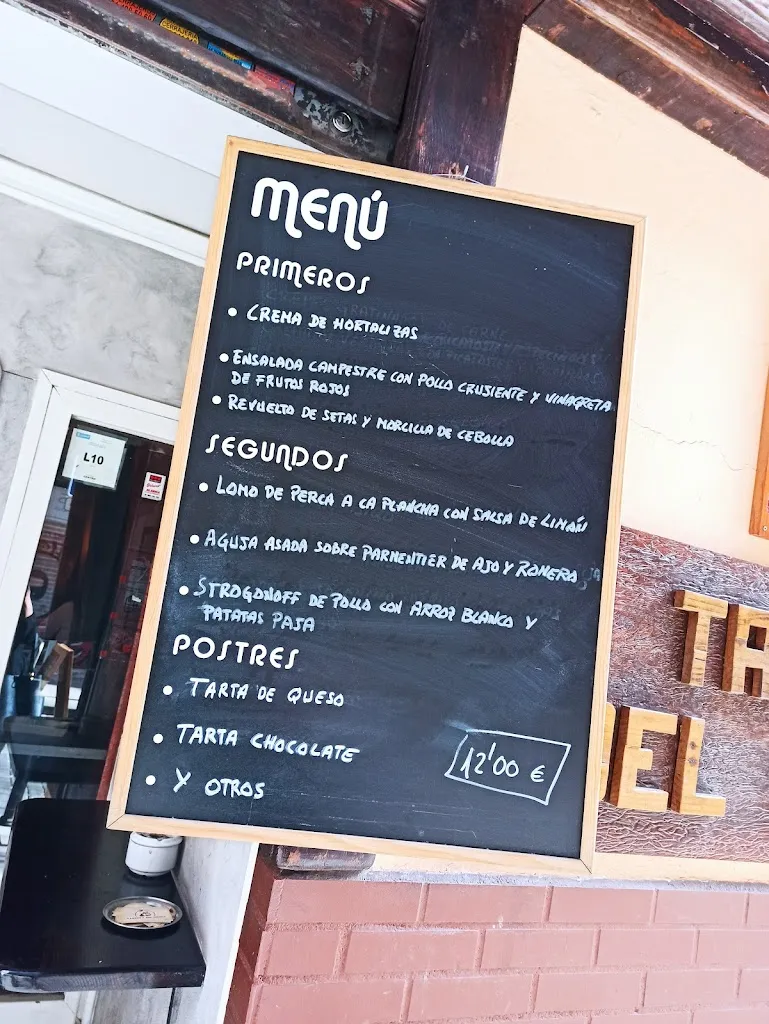 MENÚ
PRIMEROS
• CREMA DE HORTALIZAS
• ENSALADA CAMPESTRE CON POLLO CRUSIENTE Y VINAGRETA
DE FRUTOS ROJOS
• REVUELTO DE SETAS Y MORCILLA DE CEBOLLA
SEGUNDOS
• LOMO DE PERCA A LA PLANCHA CON SALSA DE LIMÓN
• AGUJA ASADA SOBRE PARMENTIER DE AJO Y ROMERO
• STROGONOFF DE POLLO CON ARROZ BLANCO Y
PATATAS PAJA
POSTRES
• TARTA DE QUESO
• TARTA CHOCOLATE
• Y OTROS
12'00 €
L10
TA
DEL